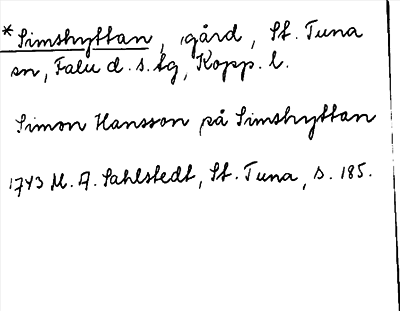 *Simshyttan, gård, St. Tuna
sn, Falu d. s. tg, Kopp. l.
Simon Hansson på Simshyttan
1743 M. A. Sahlstedt, St. Tuna, s. 185.